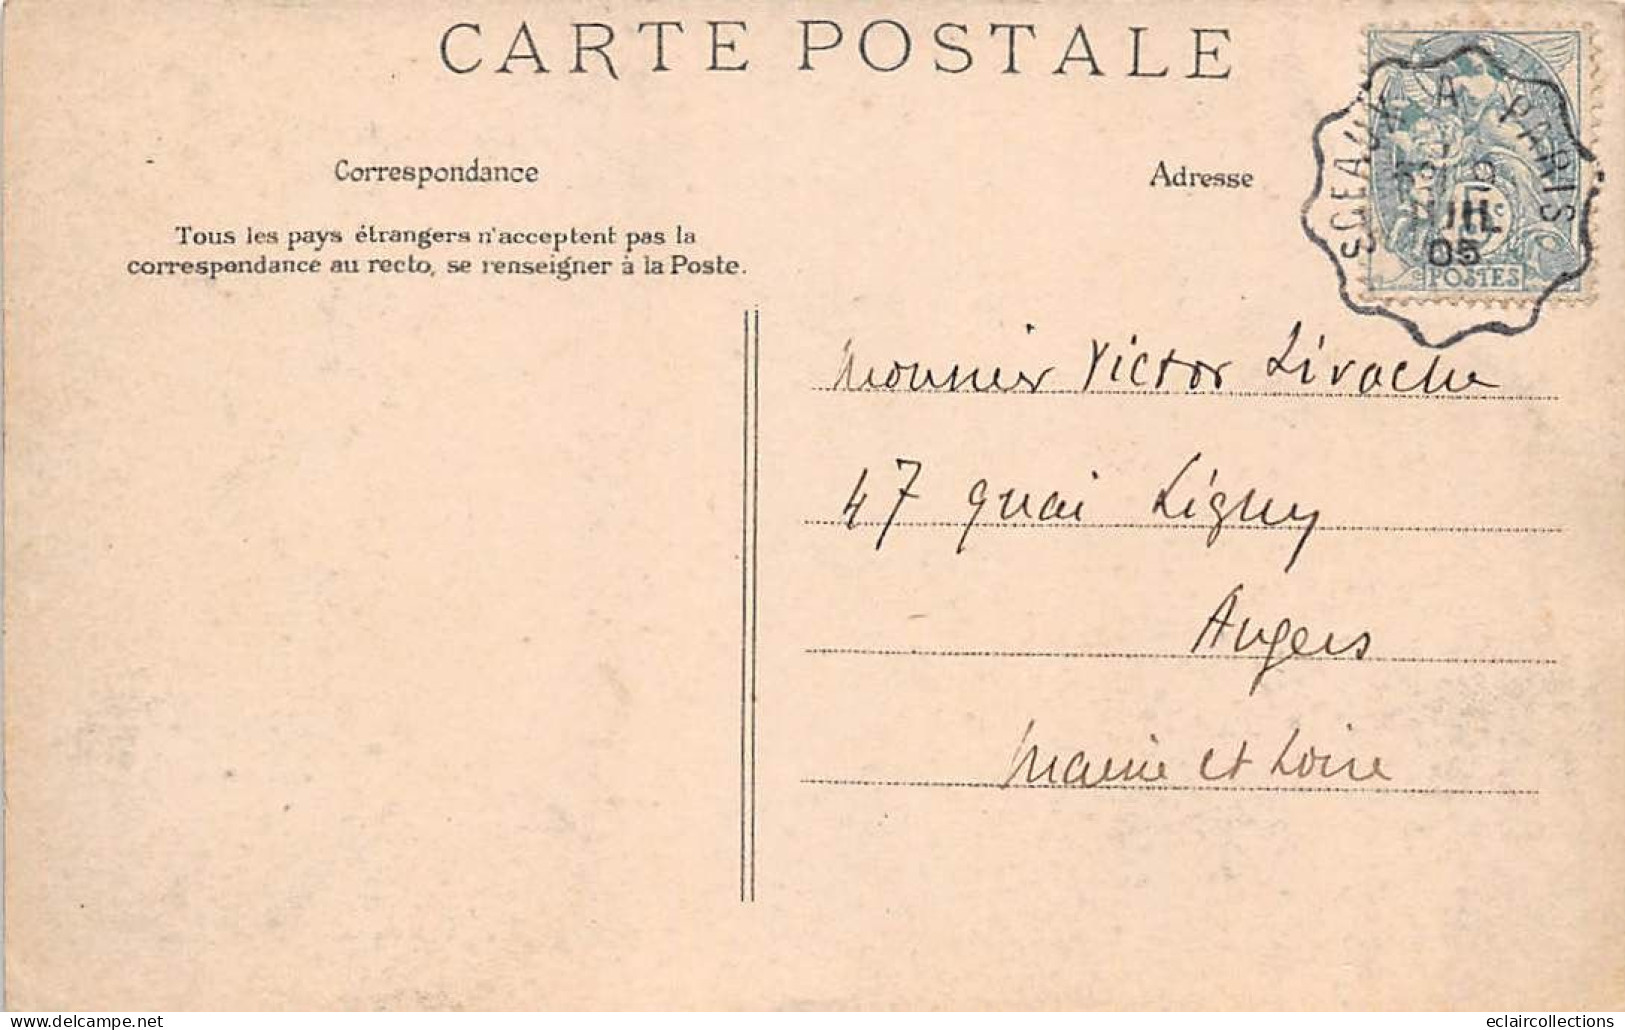 CARTE POSTALE
SCEAUX A PARIS
JUIL
05
5c
POSTES
Correspondance
Adresse
Tous les pays étrangers n'acceptent pas la
correspondance au recto, se renseigner à la Poste.
Monsieur Victor Livache
47 quai Ligny
Angers
Maine et Loire
delcampe.net
eclaircollections